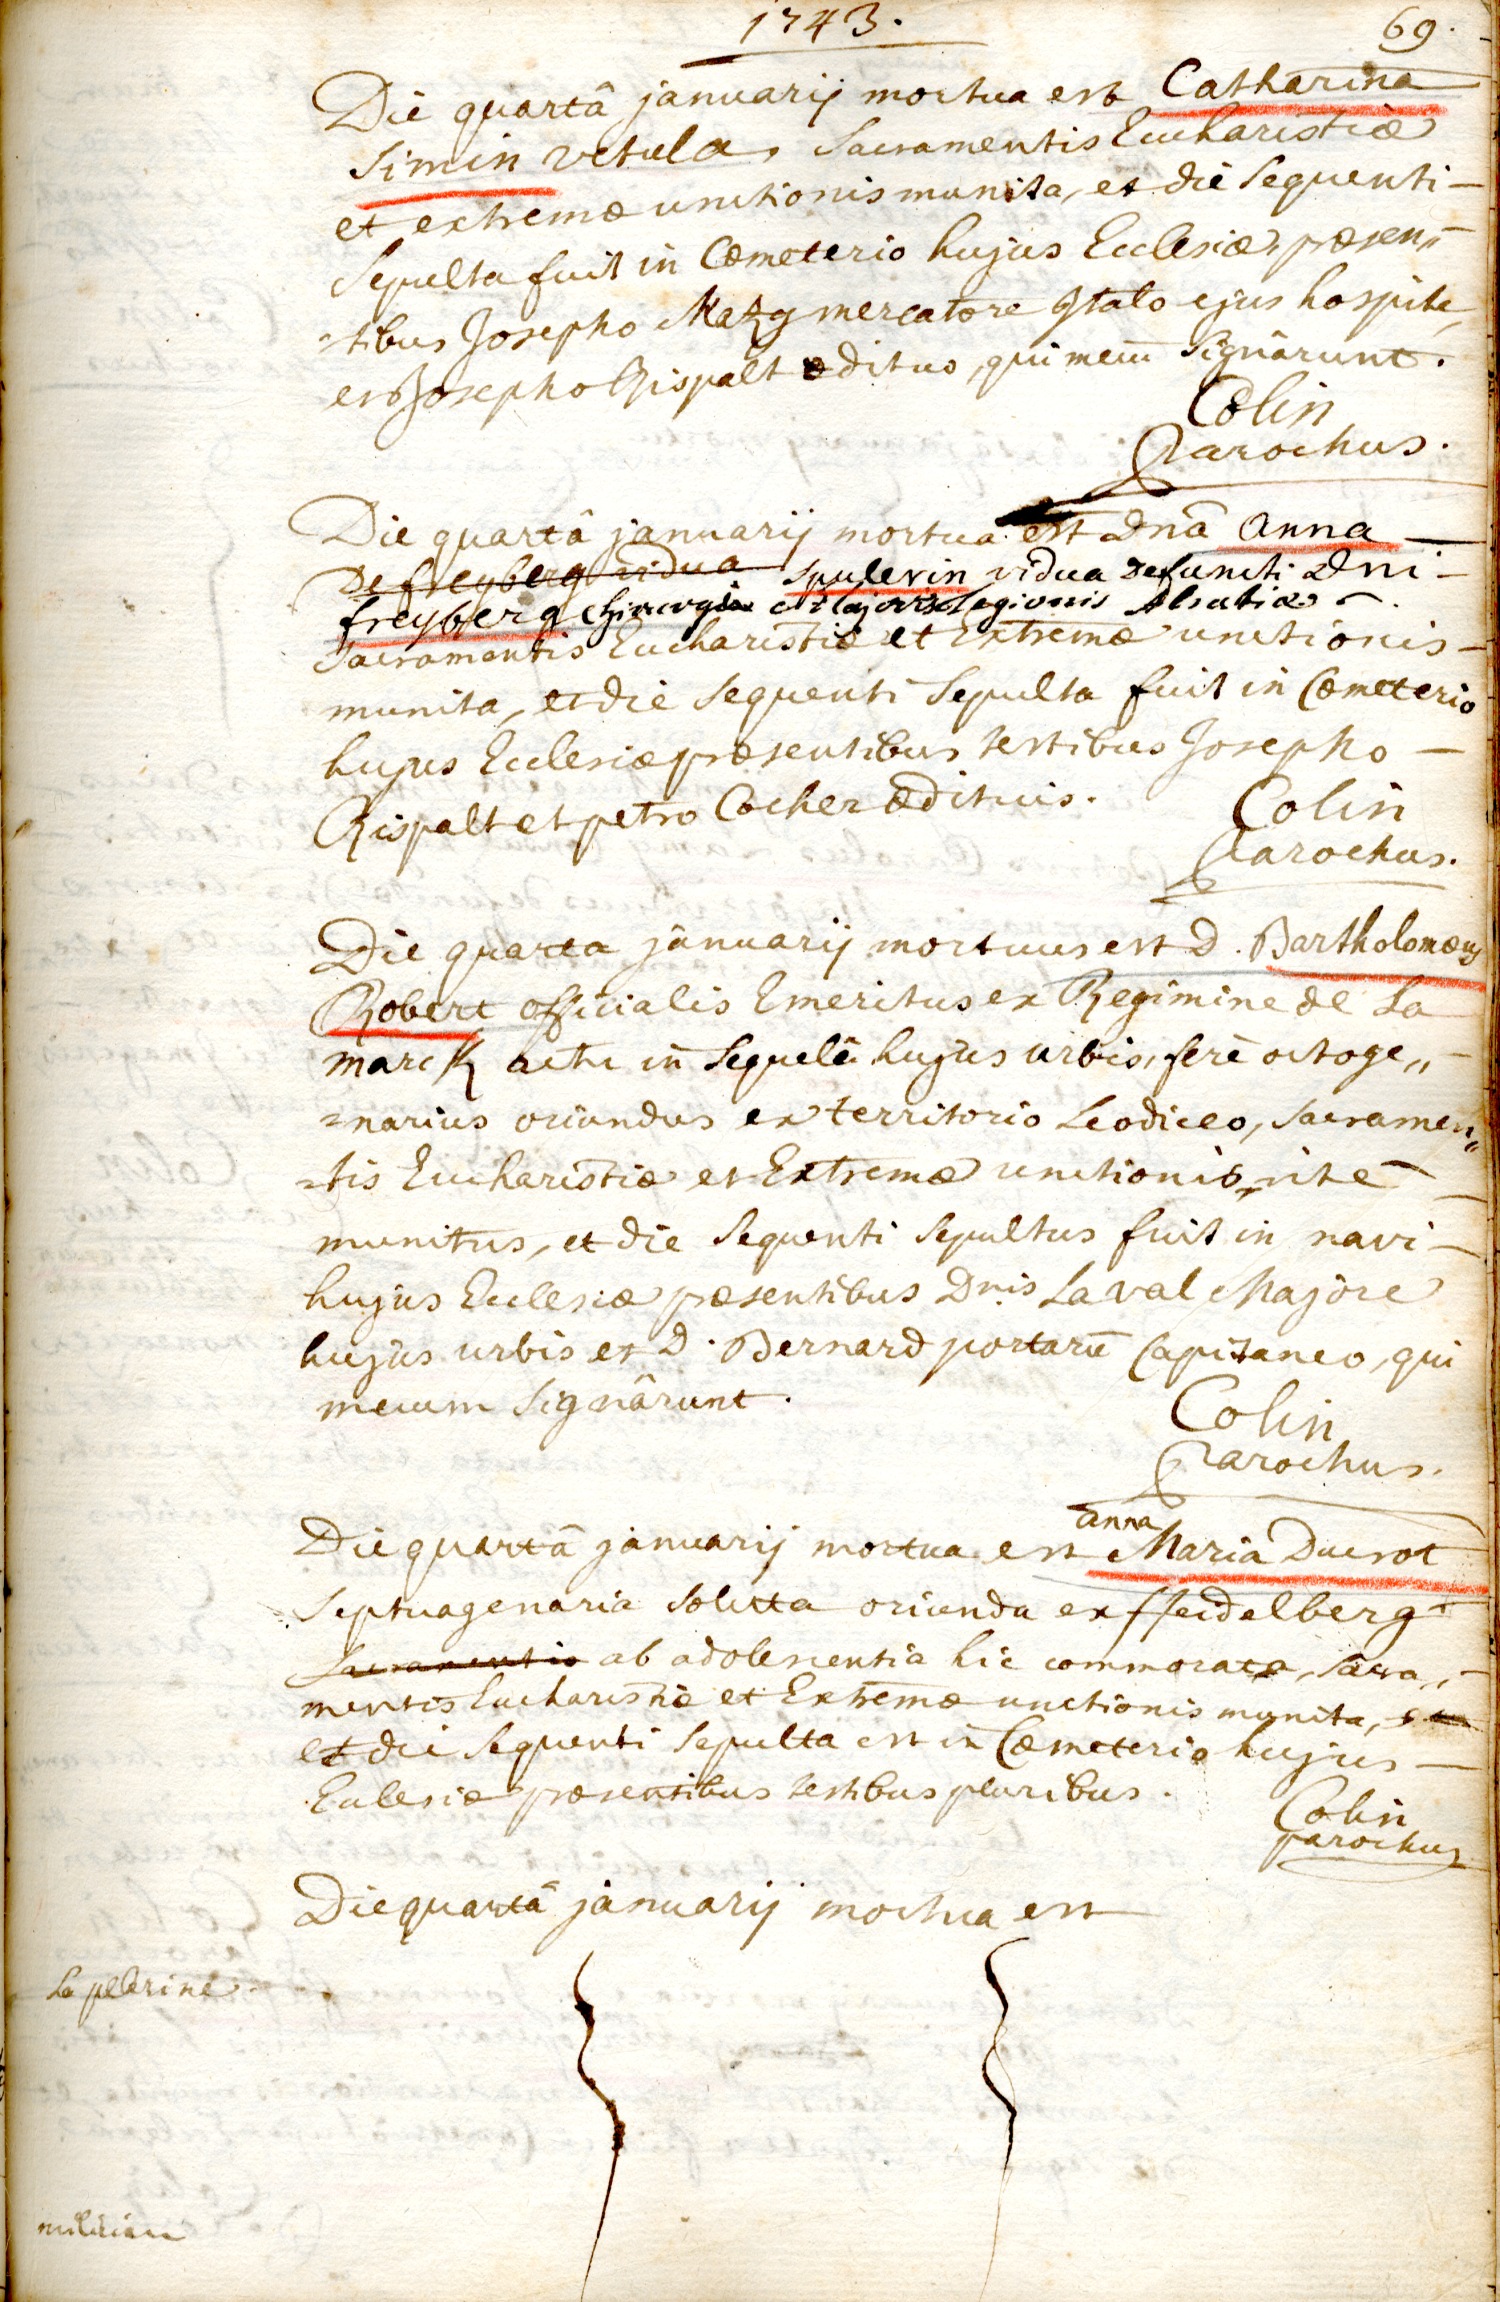 1743.
69.
Die quartâ januarij mortua est Catharina
Simin vetula, Sacramentis Eucharistiæ
et extremæ unctionis munita, et die sequenti
sepulta fuit in Cœmeterio hujus Ecclesiæ, præsen=
=tibus Josepho Mazy mercatore Italo ejus hospite,
et Josepho Rispalt ædituo, qui mecū signârunt.
Colin
Parochus.
Die quartâ januarij mortua est Dnā Anna
De freyberg vidua Spulerin vidua Defuncti Dni
freyberg Chirurgi Majoris Legionis Alsatiæ
Sacramentis Eucharistiæ et Extremæ unctionis
munita, et die sequenti sepulta fuit in Cœmeterio
hujus Ecclesiæ præsentibus testibus Josepho
Rispalt et petro Cocher ædituis.
Colin
Parochus.
Die quarta januarij mortuus est D. Bartholomæus
Robert officialis Emeritus ex Regimine de La
marck actu in sequelâ hujus urbis, ferè octoge„
=narius oriundus ex territorio Leodiceo, sacramen„
=tis Eucharistiæ et Extremæ unctionis rite
munitus, et die sequenti sepultus fuit in navi
hujus Ecclesiæ præsentibus Dnis Laval Majore
hujus urbis et D. Bernard portarū Capitaneo, qui
mecum signârunt.
Colin
Parochus.
anna
Die quartâ januarij mortua est Maria Ducrot
septuagenaria soluta oriunda ex Heidelberg
Sacramentis ab adolescentia hic commorata, sacra„
mentis Eucharistiæ et Extremæ unctionis munita,
et die sequenti sepulta est in Cœmeterio hujus
Ecclesiæ præsentibus testibus pluribus.
Colin
parochus
Die quartâ januarij mortua est
La pelerine